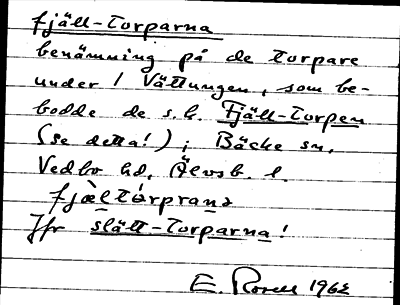 fjäll-torparna
benämning på de torpare
under / Vättungen, som be-
bodde de s.k. Fjäll-torpen
(se detta!) i Bäcke sn,
Vedbo hd, Älvsb. l.
fjæ̀ltårprana
Jfr slätt-torparna!
E. 1962